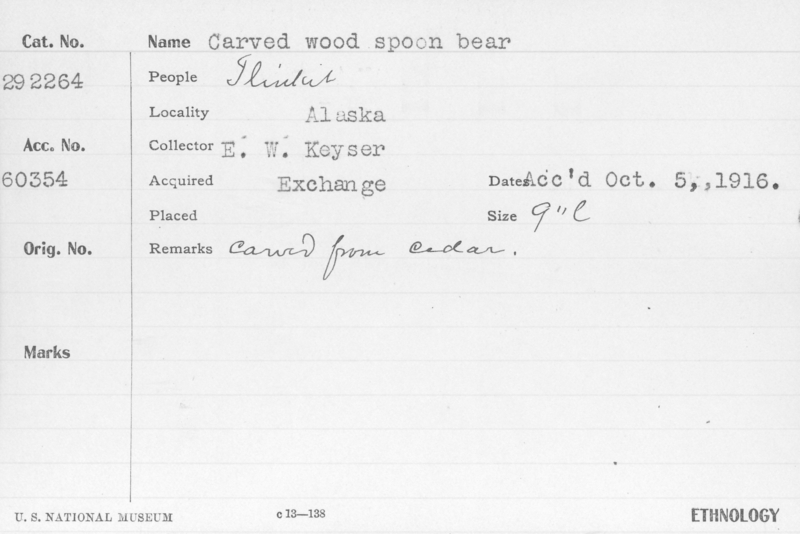 Cat. No. Name Carved wood spoon bear
292264 People Tlinkit
Locality Alaska
Acc. No. Collector E. W. Keyser
60354 Acquired Exchange Dates Acc'd Oct. 5,,1916.
Placed Size 9" L
Orig. No. Remarks Carved from cedar.
Marks
U. S. NATIONAL MUSEUM c 13—138 ETHNOLOGY